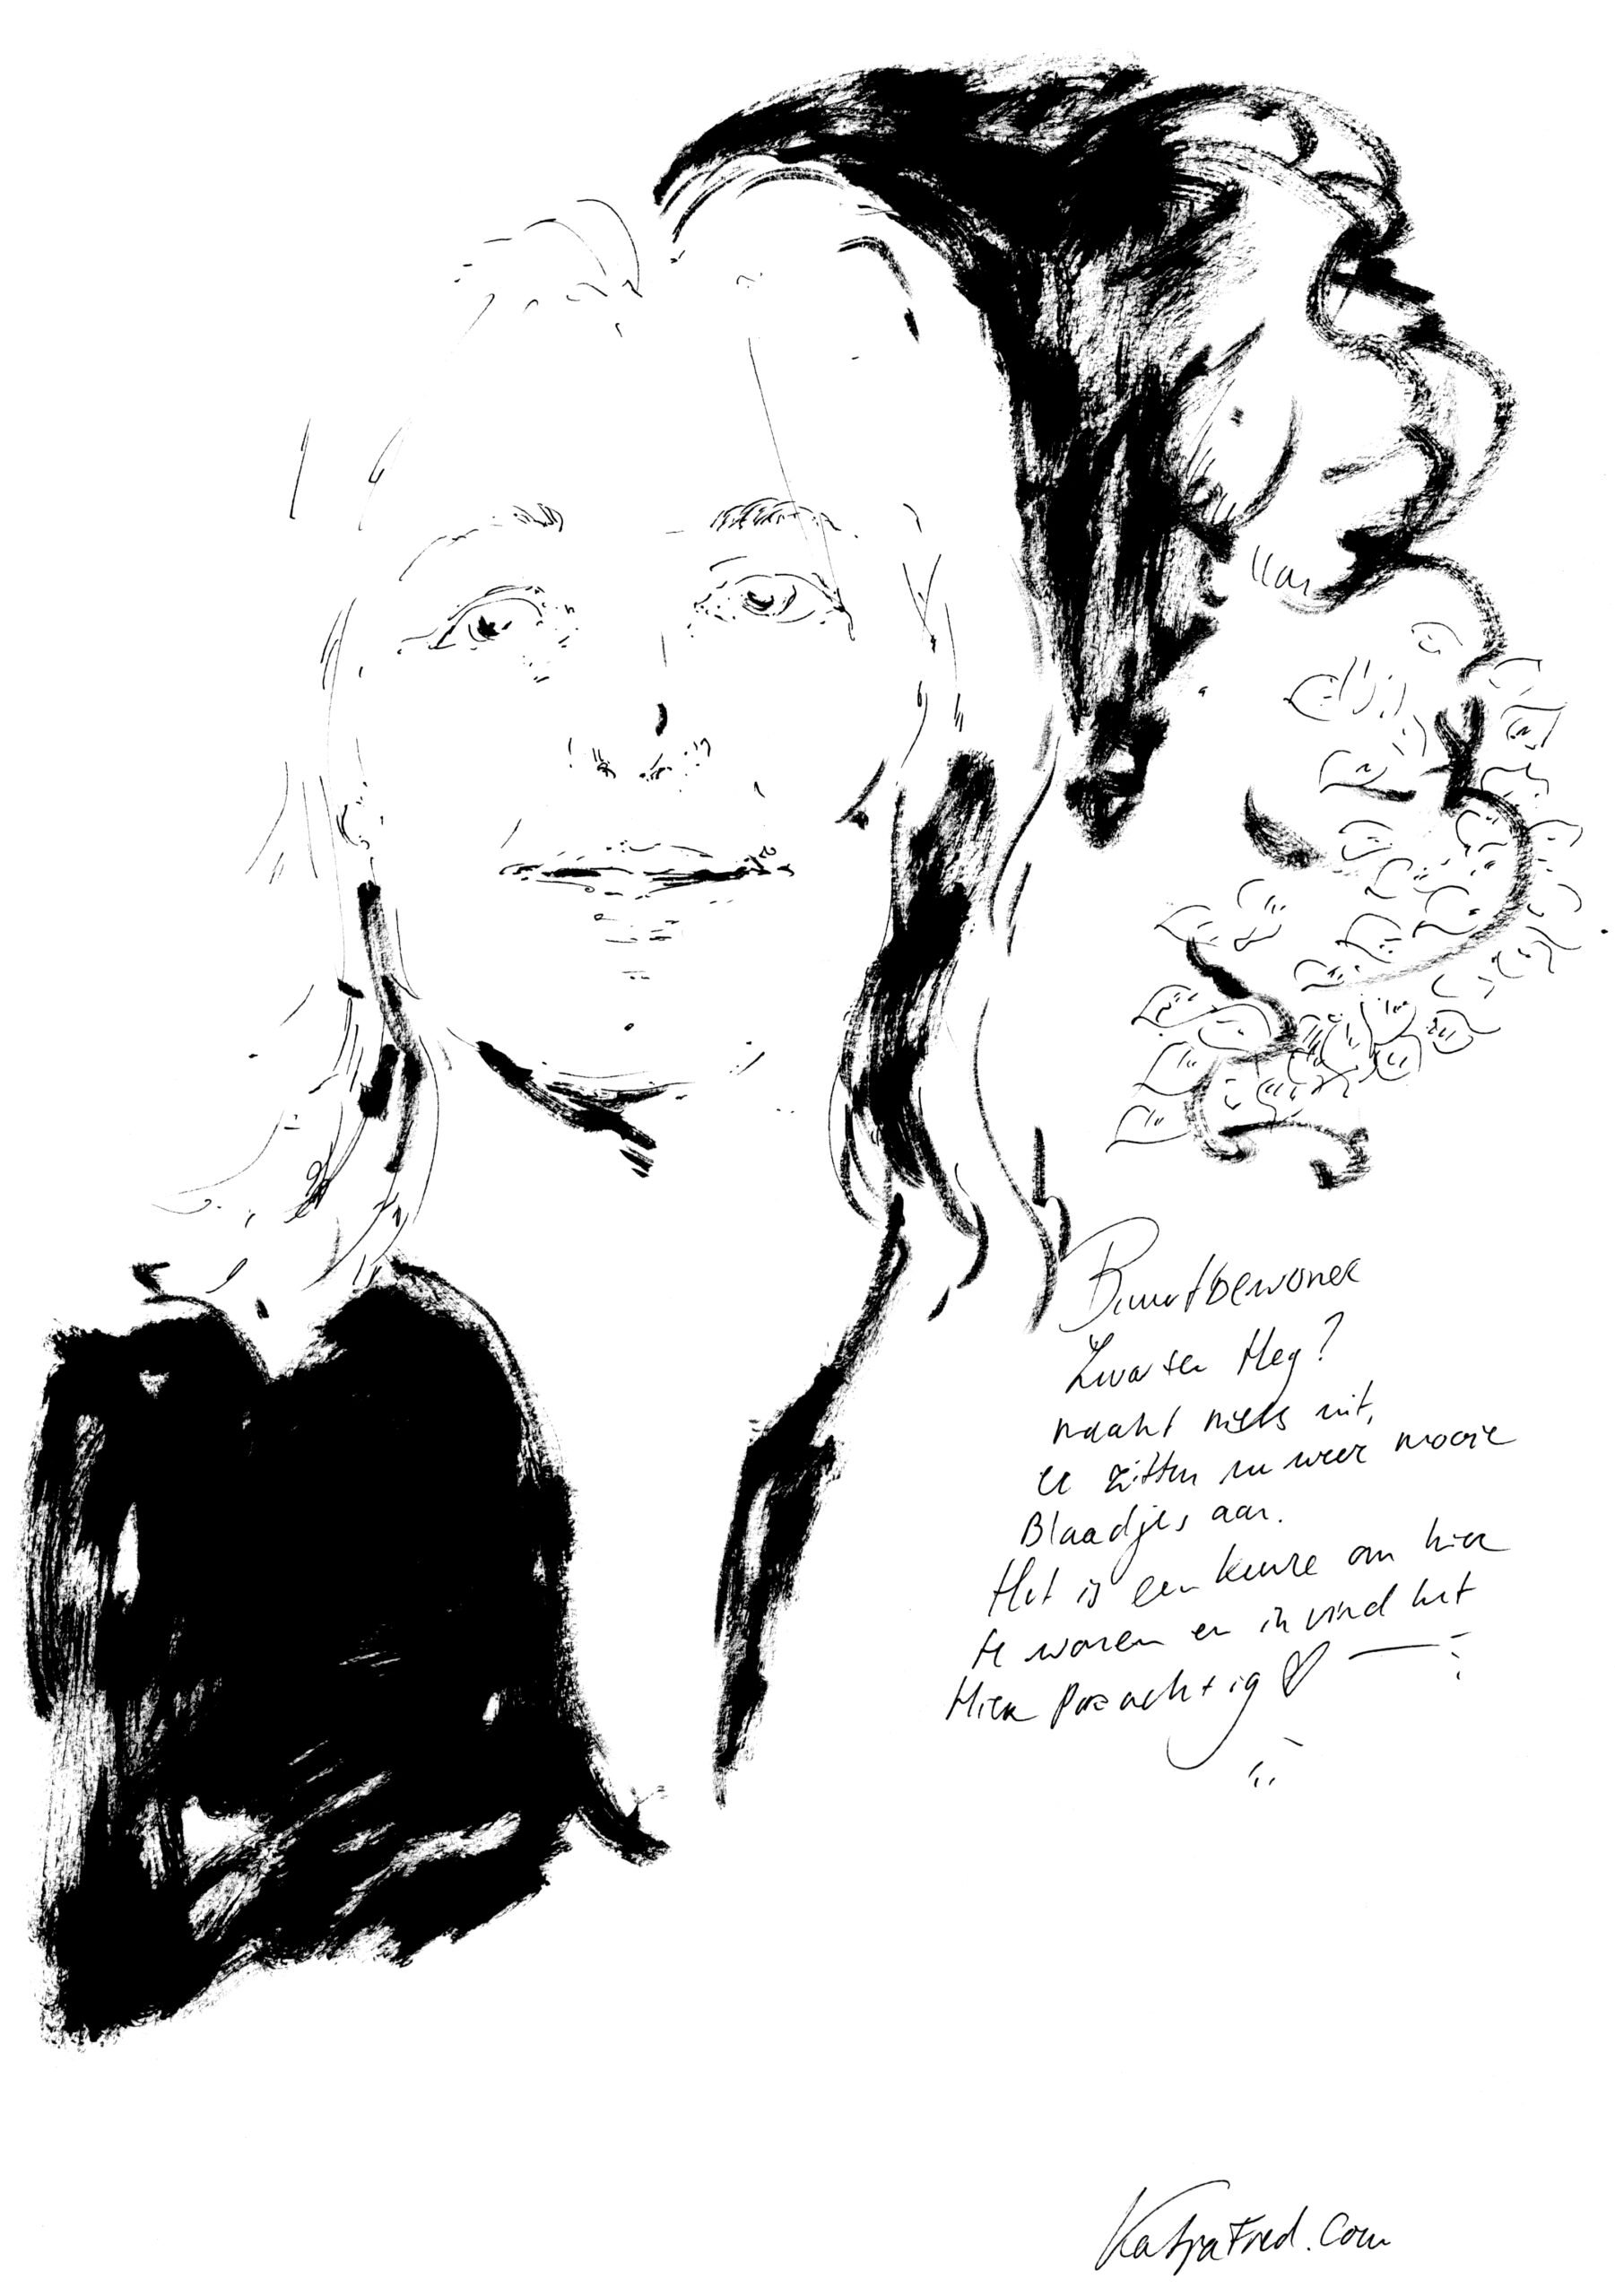 Buurtbewoner
Zwarten Heg?
maakt niets uit,
er zitten nu weer mooie
Blaadjes aan.
Het is een keuze om hier
te wonen en ik vind het
Hier Prachtig ♡
KatjaFred.com